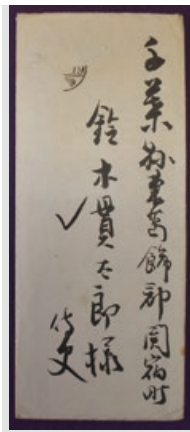 千葉縣東葛飾郡関宿町
鈴木貫太郎様
侍史